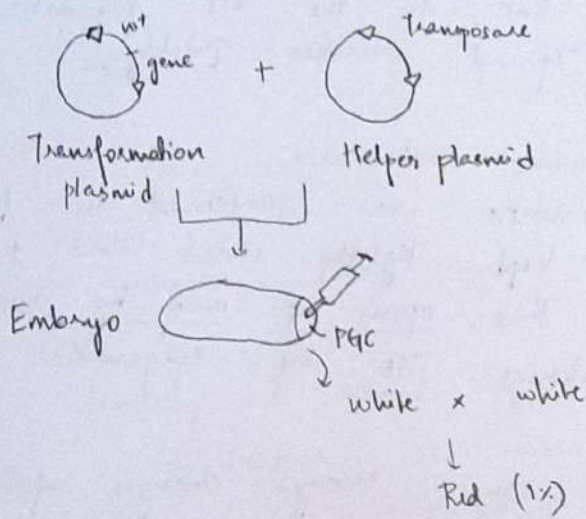 w+
gene
+
Transposase
Transformation
plasmid
Helper plasmid
Embryo
PGC
white × white
Red (1%)